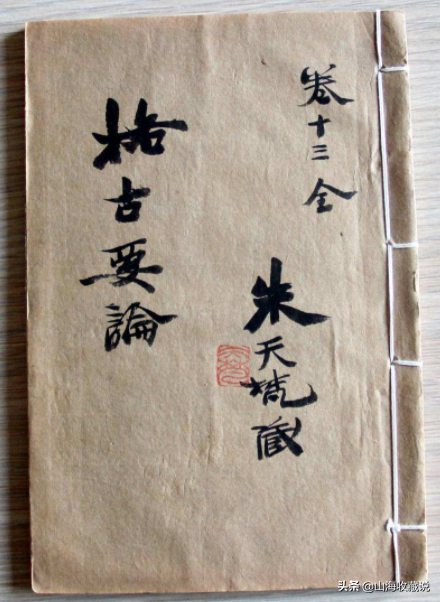 卷十三全
朱天梵藏
格古要論
头条 @山海收藏说